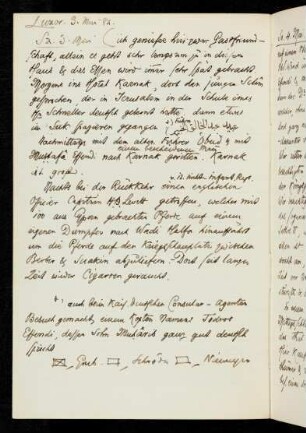 Luxor. 3. Mai 84.
Sa. 3. Mai (ich genieße hier zwar Gastfreund-
schaft, allein es geht sehr langsam zu in diesem
Haus & das Essen wird immer sehr spät gebracht
Morgens ins Hotel Karnak, dort den jungen Sohn
gesprochen der in Jerusalem in der Schule eines
Hr Schneller deutsch gelernt hatte, dann etwas
im Suk spazieren gegangen
Nachmittags mit dem alten Führer Obeid & mit
Mustafa Effendi nach Karnak geritten Karnak
ist groß.
Nachts bei der Rückkehr einen englischen
Officier Capitain getroffen, welcher mit
ihm aus Pferde auf einem
eigenen Dampfer nach Wadi Halfa hinauffährt
um die Pferde auf den Kriegsschauplatz zwischen
Berber & Suakin abzuliefern. Dort seit langer
Zeit wieder Cigarren geraucht.
auch beim Kais. deutschen Consular-Agenten
Besuch gemacht, einem Kopten Namens Todros
Effendi, dessen Sohn Mohareb ganz gut deutsch
spricht